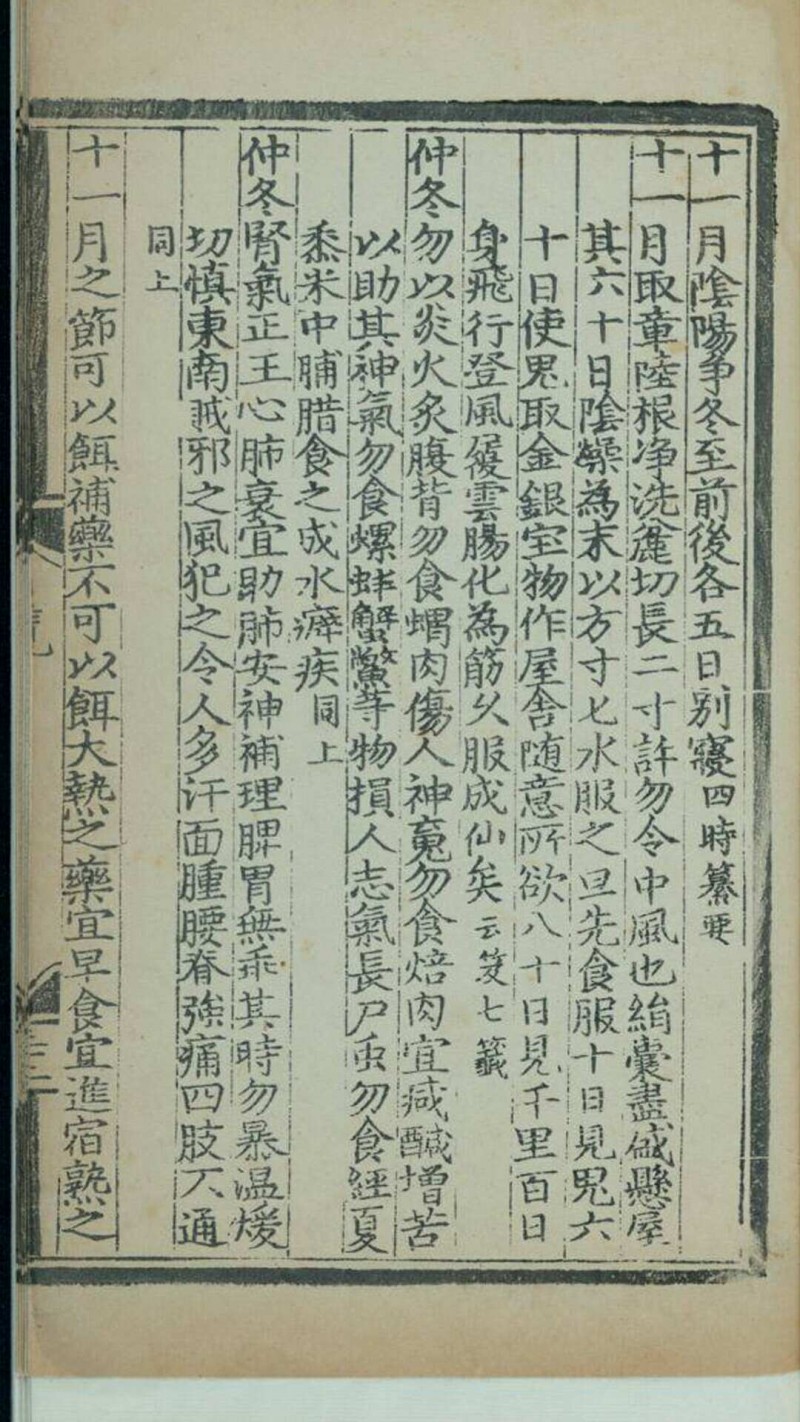 十一月陰陽争冬至前後各五日别寢四時纂要
十一月取章陸根净洗麄切長二寸許勿令中風也絹囊盡盛懸屋
其六十日陰燥為末以方寸匕水服之旦先食服十日見鬼六
十日使鬼取金銀宝物作屋舎随意所欲八十日見千里百日
身飛行登風履雲腸化為筋久服成仙矣云笈七籖
仲冬勿以炎火炙腹背勿食蝟肉傷人神䰟勿食焙肉宜减醎増苦
以助其神氣勿食螺蚌蟹鱉等物損人志氣長尸虫勿食経夏
黍米中脯腊食之成水癖疾同上
仲冬腎氣正王心肺衰宜助肺安神補理脾胃無乖其時勿暴温煖
切慎東南賊邪之風犯之令人多汗面腫腰脊強痛四肢不通
同上
十一月之節可以餌補藥不可以餌大熱之藥宜早食宜進宿熟之